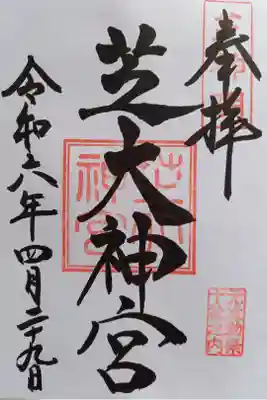 奉拝
芝大神宮
令和六年四月二十九日